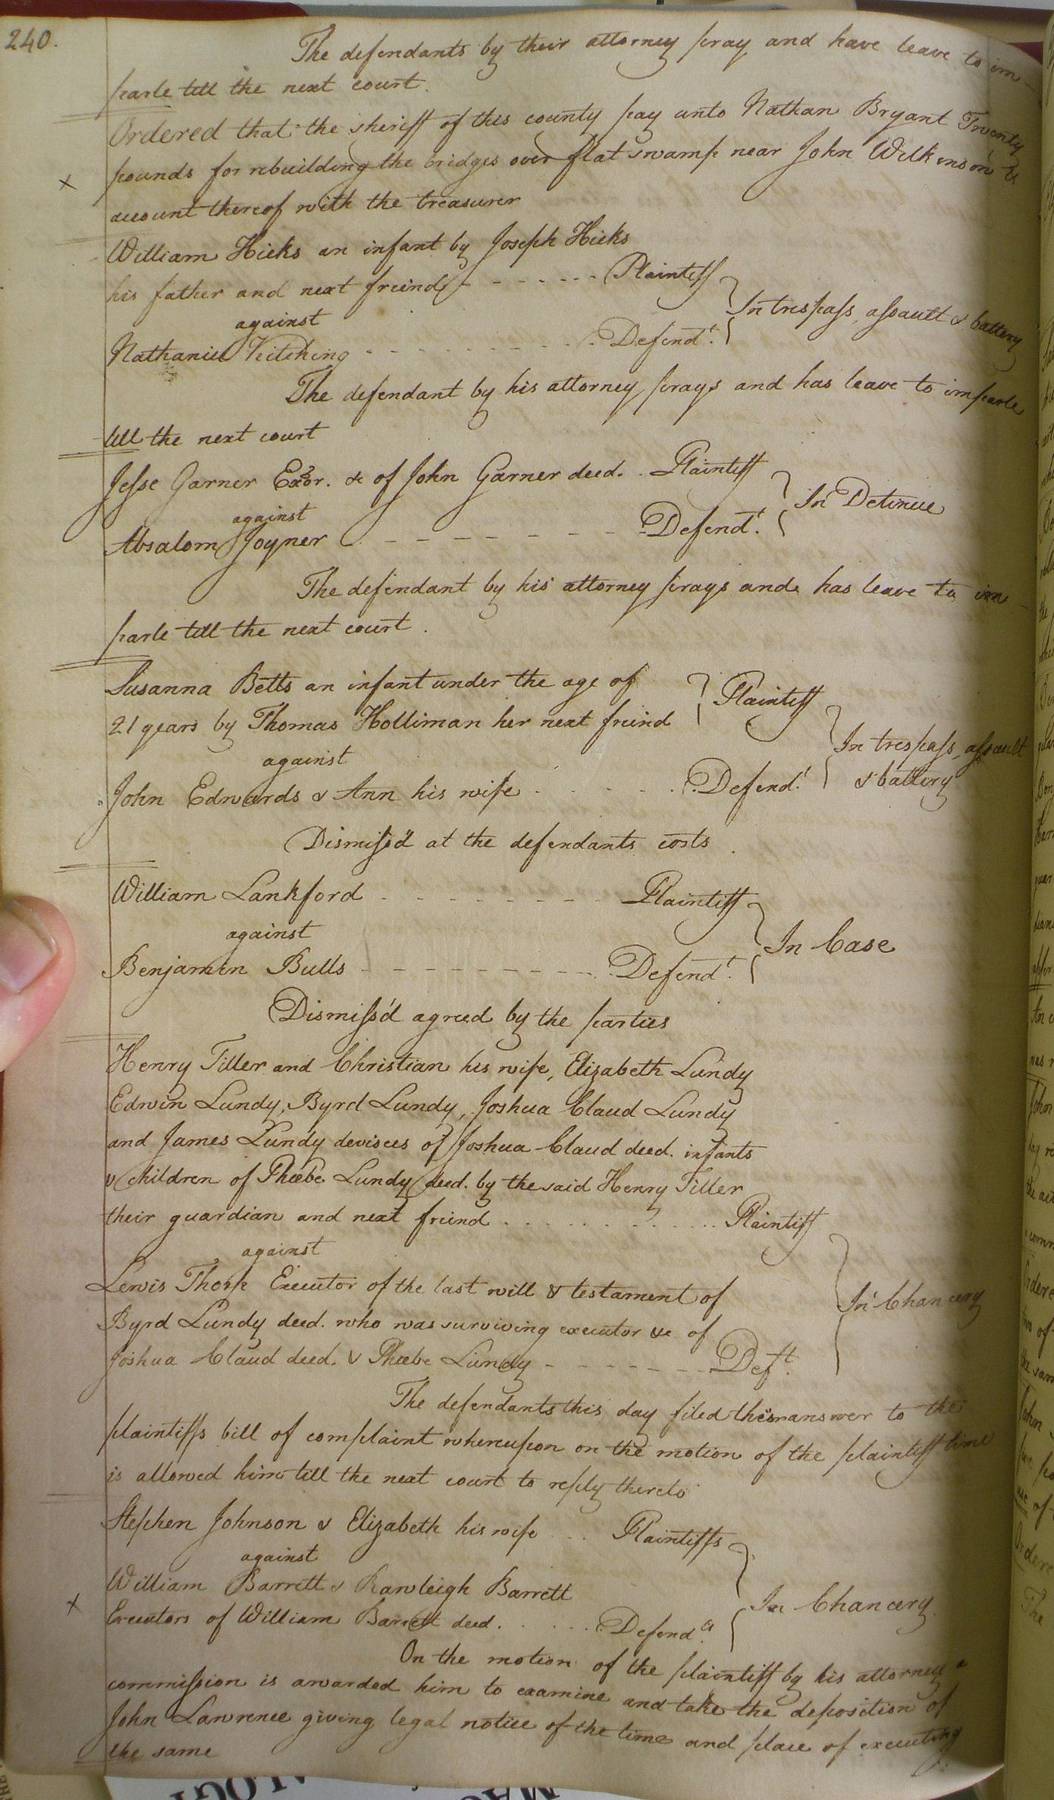 240.
The defendants by their attorney pray and have leave to im
parle till the next court.
Ordered that the sheriff of this county pay unto Nathan Bryant Twenty
pounds for rebuilding the bridges over flat swamp near John Wilkinson &
account thereof with the treasurer
William Hicks an infant by Joseph Hicks
his father and next freind - - - - - - Plaintiff
In trespass, assault & battery
against
Nathaniel Kitching - - - - - - - - - - Defendt.
The defendant by his attorney prays and has leave to imparle
till the next court
Jesse Garner Exor. &c of John Garner decd. . Plaintiff
In Detinue
against
Absalom Joyner - - - - - - - - Defendt.
The defendant by his attorney prays and has leave to im
parle till the next court .
Susanna Betts an infant under the age of
21 years by Thomas Holliman her next freind
Plaintiff
In trespass, assault
& battery
against
John Edwards & Ann his wife . . . . . . Defendt.
Dismiss'd at the defendants costs .
William Lankford - - - - - - - - Plaintiff
against
In Case
Benjamin Bulls - - - - - - - - - - Defendt.
Dismiss'd agreed by the parties
Henry Tiller and Christian his wife, Elizabeth Lundy
Edwin Lundy, Byrd Lundy, Joshua Claud Lundy
and James Lundy devisees of Joshua Claud decd. infants
& children of Phœbe Lundy decd. by the said Henry Tiller
their guardian and next freind . . . . . . . . . . . . . Plaintiff
against
Lewis Thorp Executor of the last will & testament of
In Chancery
Byrd Lundy decd. who was surviving executor &c of
Joshua Claud decd. & Phœbe Lundy - - - - - - - Deft.
The defendants this day filed their answer to the
plaintiffs bill of complaint whereupon on the motion of the plaintiff time
is allowed him till the next court to reply thereto
Stephen Johnson & Elizabeth his wife . . . Plaintiffs
against
William Barrett & Rawleigh Barrett
In Chancery
Executors of William Barrett decd. . . . . . Defendts.
On the motion of the plaintiff by his attorney a
commission is awarded him to examine and take the deposition of
John Lawrence giving legal notice of the time and place of executing
the same